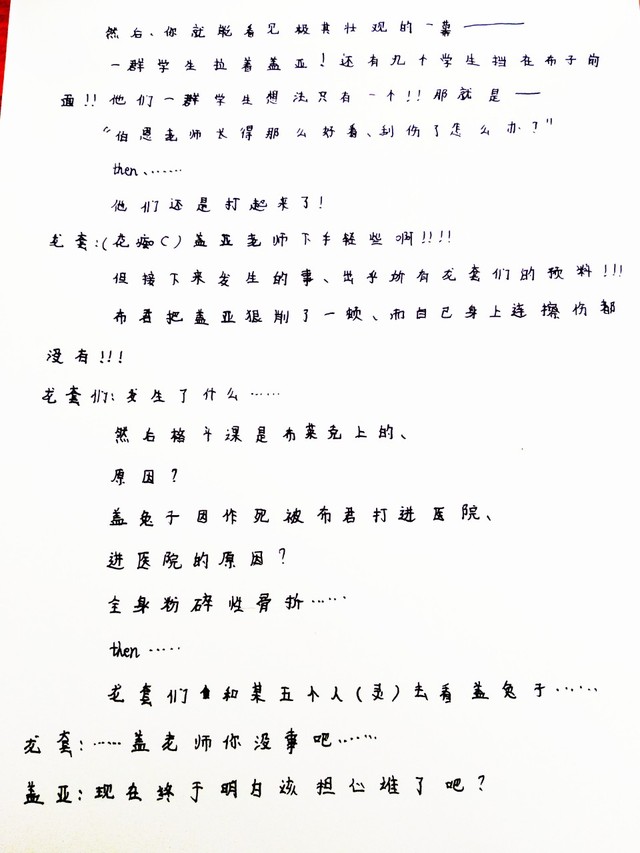 然后、你就能看见极其壮观的一幕———
一群学生拉着盖亚!还有几个学生挡在布子前
面!!他们一群学生想法只有一个!!那就是——
“伯恩老师长得那么好看、刮伤了怎么办?”
then、……
他们还是打起来了!
龙套:(花痴C)盖亚老师下手轻些啊!!!!
但接下来发生的事、出乎所有龙套们的预料!!!
布君把盖亚狠削了一顿、而自己身上连擦伤都
没有!!!
龙套们:发生了什么……
然后格斗课是布莱克上的、
原因?
盖兔子因作死被布君打进医院、
进医院的原因?
全身粉碎性骨折……
then……
龙套们和某五个人(灵)去看盖兔子……
龙套:……盖老师你没事吧……
盖亚:现在终于明白该担心谁了吧?